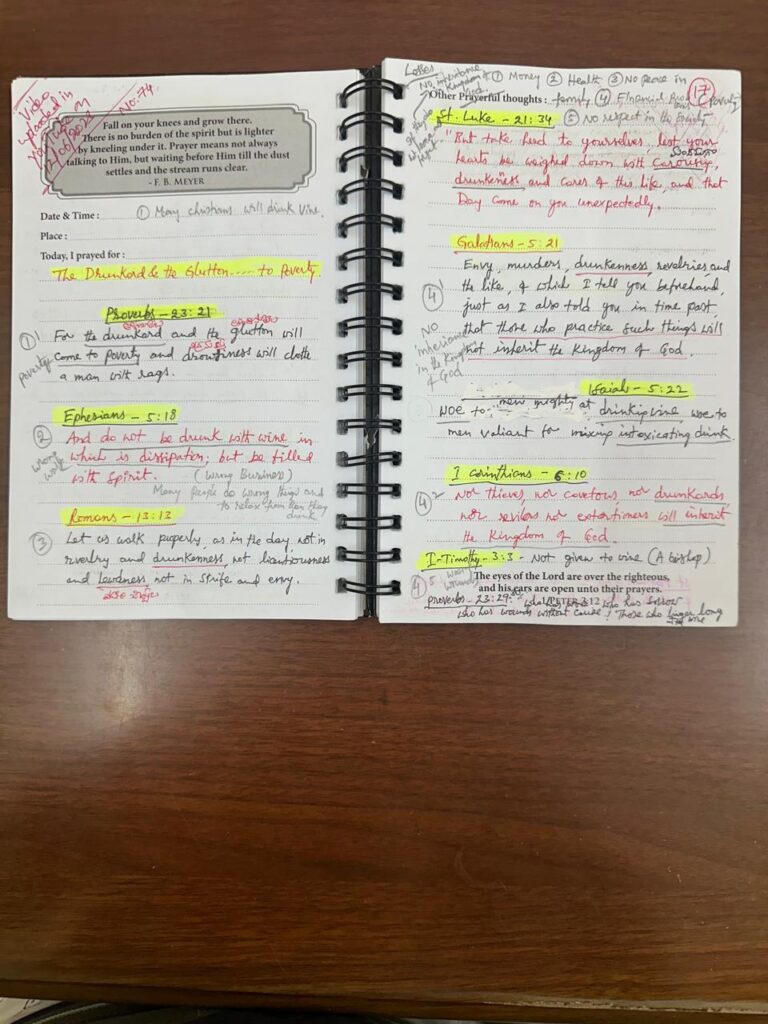 Video
uploaded in
on
No: 74
Fall on your knees and grow there.
There is no burden of the spirit but is lighter
by kneeling under it. Prayer means not always
talking to Him, but waiting before Him till the dust
settles and the stream runs clear.
- F. B. MEYER
Date & Time : ① Many christians will drink Vine.
Place :
Today, I prayed for :
The Drunkard & the Glutton ..... to Poverty
Proverbs - 23:21
① For the drunkard and the glutton will
poverty come to poverty and drowsiness will clothe
a man with rags.
Ephesians - 5:18
② And do not be drunk with wine in
wrong walk which is dissipation; but be filled
with Spirit. (Wrong Business)
Many People do wrong things and
to relax from them they
drink
Romans - 13:13
③ Let us walk properly, as in the day, not in
revelry and drunkenness, not
and lewdness, not in strife and envy.
Loses
No inheritance Kingdom of God
① Money ② Health ③ No peace in
Other Prayerful thoughts : family ④ Financial
Poverty
17
St. Luke - 21:34 ⑤ No respect in the Society
"But take heed to yourselves, lest your
hearts be weighed down with Carousing,
drunkeness and cares of this life, and that
Day come on you unexpectedly.
Galatians - 5:21
Envy, murders, drunkenness, revelries, and
④ 1 the like, of which I tell you beforehand,
just as I also told you in time past,
No inheriance in the Kingdom of God
that those who practice such things will
not inherit the Kingdom of God.
Isaiah - 5:22
WOE to men mighty at drinking vine woe to
men valiant for mixing intoxicating drink.
I Corinthians - 6:10
④ 2 Nor thieves, nor covetous nor drunkards,
nor revilers nor extortioners will inherit
the Kingdom of God.
I - Timothy - 3:3 - Not given to wine (A bishop)
The eyes of the Lord are over the righteous,
and his ears are open unto their prayers.
1 PETER 3:12
Proverbs - 23:29: who has sorrow
who has wounds without cause? Those who linger long
wine